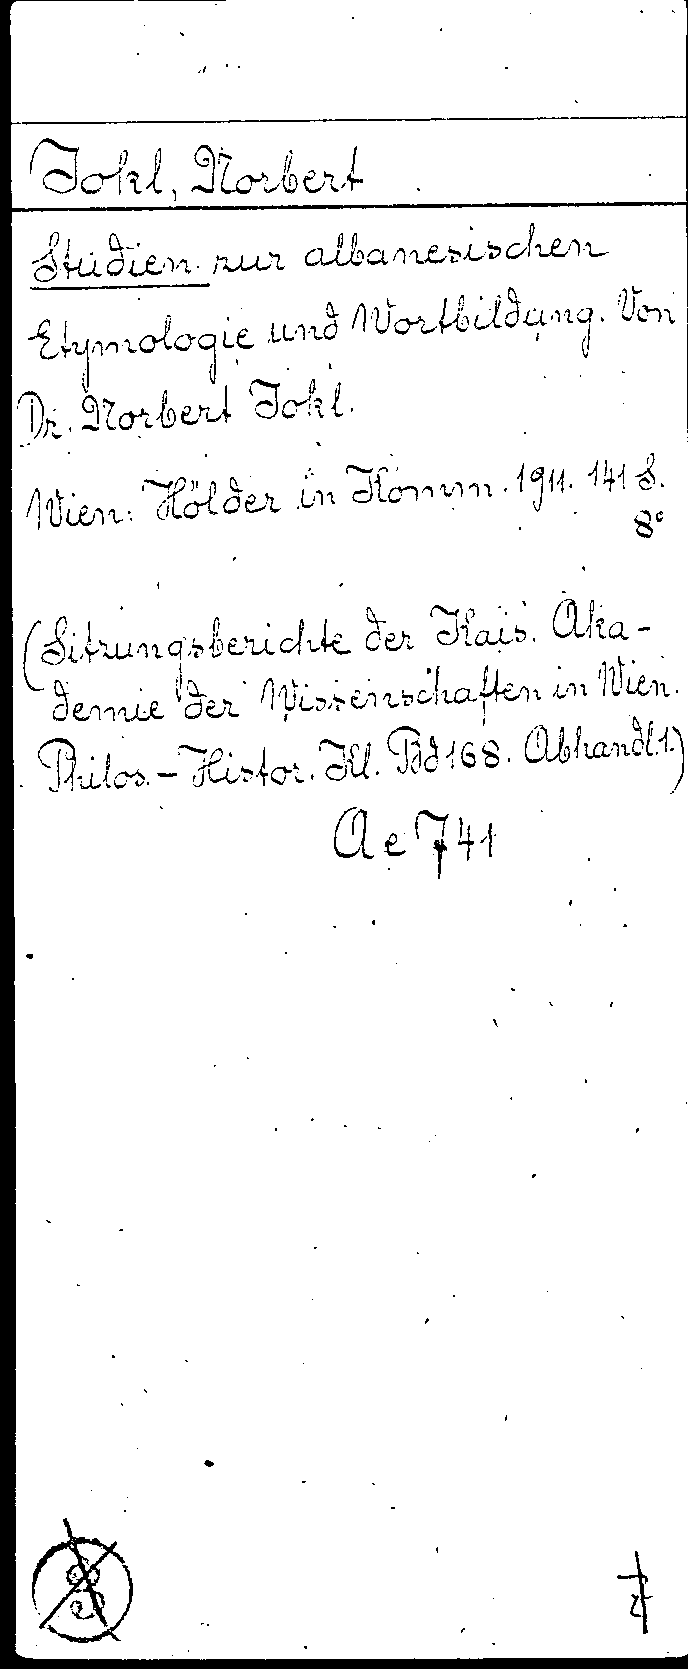 Jokl, Norbert
Studien zur albanesischen
Etymologie und Wortbildung. Von
Dr. Norbert Jokl.
Wien: Hölder in Komm. 1911. 141 S.
8°
(Sitzungsberichte der Kais. Aka-
demie der Wissenschaften in Wien.
Philos.-Histor. Kl. Bd 168. Abhandl. 1.)
Ae 741